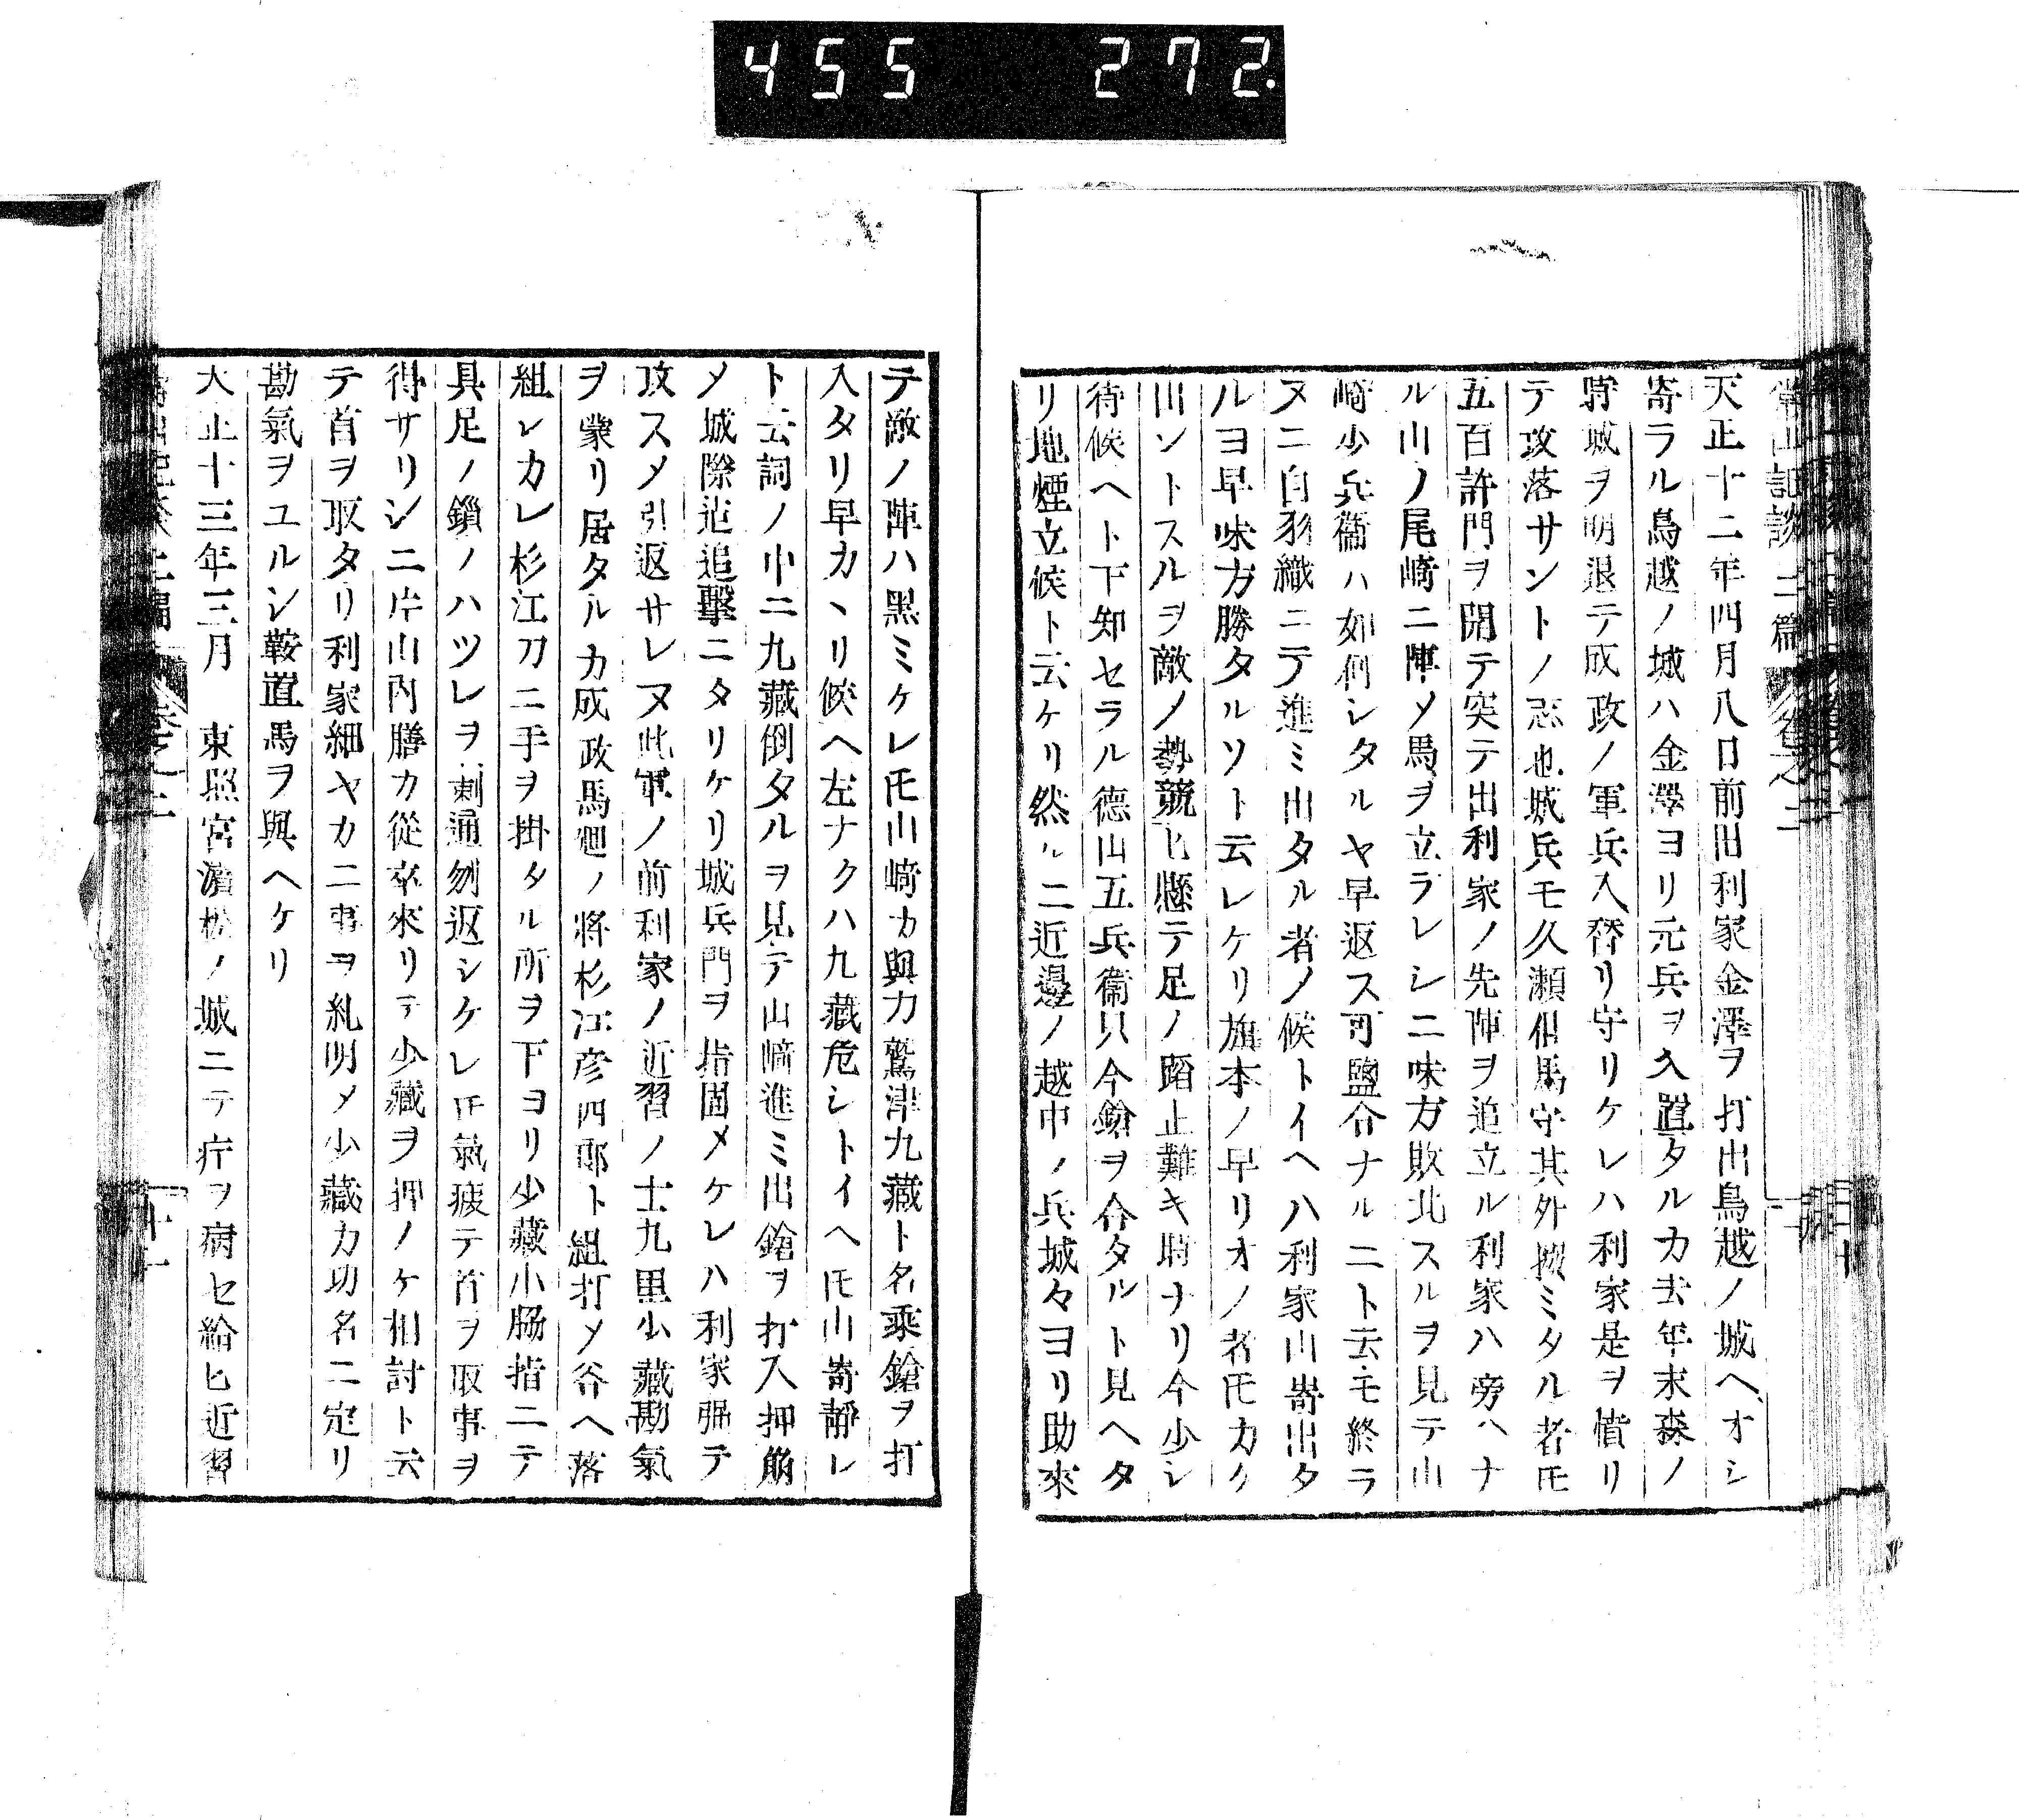 455 272.
常山記談 上篇 卷之二
天正十二年四月八日前田利家金澤ヲ打出鳥越ノ城ヘオシ
寄ラル鳥越ノ城ハ金澤ヨリ元兵ヲ久置タルカ去年末森ノ
時城ヲ明退テ成政ノ軍兵入替リ守リケレハ利家是ヲ憤リ
テ攻落サントノ志也城兵モ久瀬但馬守其外撰ミタル者𪜈
五百許門ヲ開テ突テ出利家ノ先陣ヲ追立ル利家ハ旁ハナ
ル山ノ尾崎ニ陣メ馬ヲ立ラレシニ味方敗北スルヲ見テ山
崎少兵衞ハ如何シタルヤ早返ス可鹽合ナルニト云モ終ラ
ヌニ白羽織ニテ進ミ出タル者ノ候トイヘハ利家山崎出タ
ルヨ早味方勝タルソト云レケリ旗本ノ早リオノ者𪜈カケ
出ントスルヲ敵ノ勢競ヒ懸テ足ノ蹈止難キ時ナリ今少シ
待候ヘト下知セラル德山五兵衞只今鎗ヲ合タルト見ヘタ
リ地煙立候ト云ケリ然ルニ近邊ノ越中ノ兵城々ヨリ助來
テ敵ノ陣ハ黑ミケレ𪜈山崎カ與力鷲津九藏ト名乘鎗ヲ打
入タリ早カヽリ候ヘ左ナクハ九藏危シトイヘ𪜈山崎靜レ
ト云詞ノ中ニ九藏倒タルヲ見テ山崎進ミ出鎗ヲ打入押崩
メ城際迄追擊ニタリケリ城兵門ヲ指固メケレハ利家强テ
攻スメ引返サレヌ此軍ノ前利家ノ近習ノ士九里少藏勘氣
ヲ蒙リ居タルカ成政馬廻ノ將杉江彥四郎ト組打メ谷ヘ落
組レカレ杉江刀ニ手ヲ掛タル所ヲ下ヨリ少藏小脇指ニテ
具足ノ鎖ノハツレヲ刺通刎返シケレ𪜈氣疲テ首ヲ取事ヲ
得サリシニ片山內膳カ從卒來リテ少藏ヲ押ノケ相討ト云
テ首ヲ取タリ利家細ヤカニ事ヲ糺明メ少藏カ功名ニ定リ
勘氣ヲユルシ鞍置馬ヲ與ヘケリ
天正十三年三月 東照宮濱松ノ城ニテ疔ヲ病セ給ヒ近習